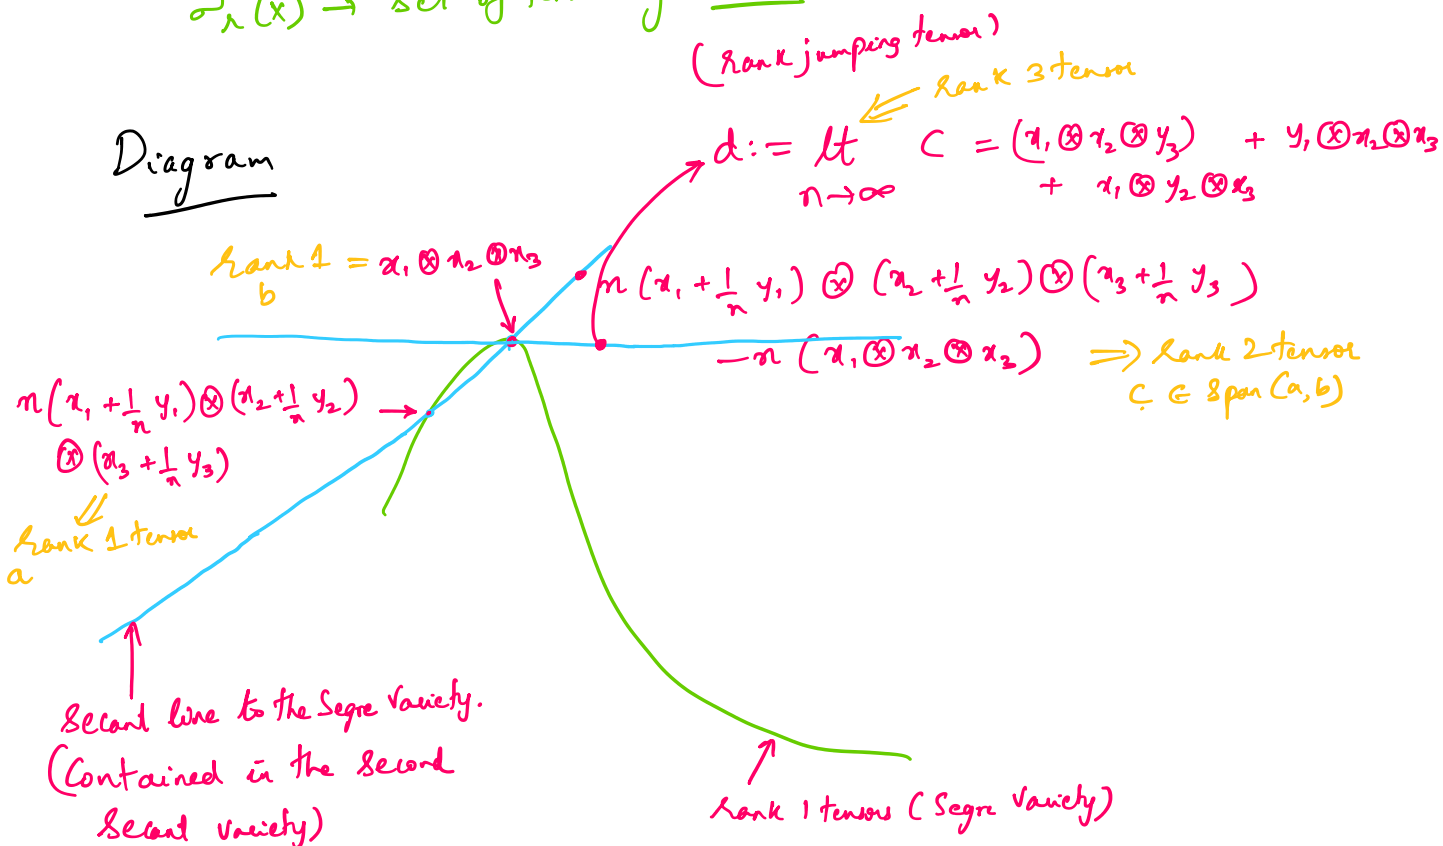 σ_r(x) → set of
(rank jumping tensor)
rank 3 tensor
Diagram
d := lt C = (x₁ ⊗ x₂ ⊗ y₃) + y₁ ⊗ x₂ ⊗ x₃
n→∞ + x₁ ⊗ y₂ ⊗ x₃
rank 1 = x₁ ⊗ x₂ ⊗ x₃
b
n (x₁ + 1/n y₁) ⊗ (x₂ + 1/n y₂) ⊗ (x₃ + 1/n y₃)
– n (x₁ ⊗ x₂ ⊗ x₃) ⇒ rank 2 tensor
C ∈ span (a, b)
n (x₁ + 1/n y₁) ⊗ (x₂ + 1/n y₂) →
⊗ (x₃ + 1/n y₃)
rank 1 tensor
a
Secant line to the Segre Variety.
(Contained in the second
Secant variety)
rank 1 tensors (Segre Variety)